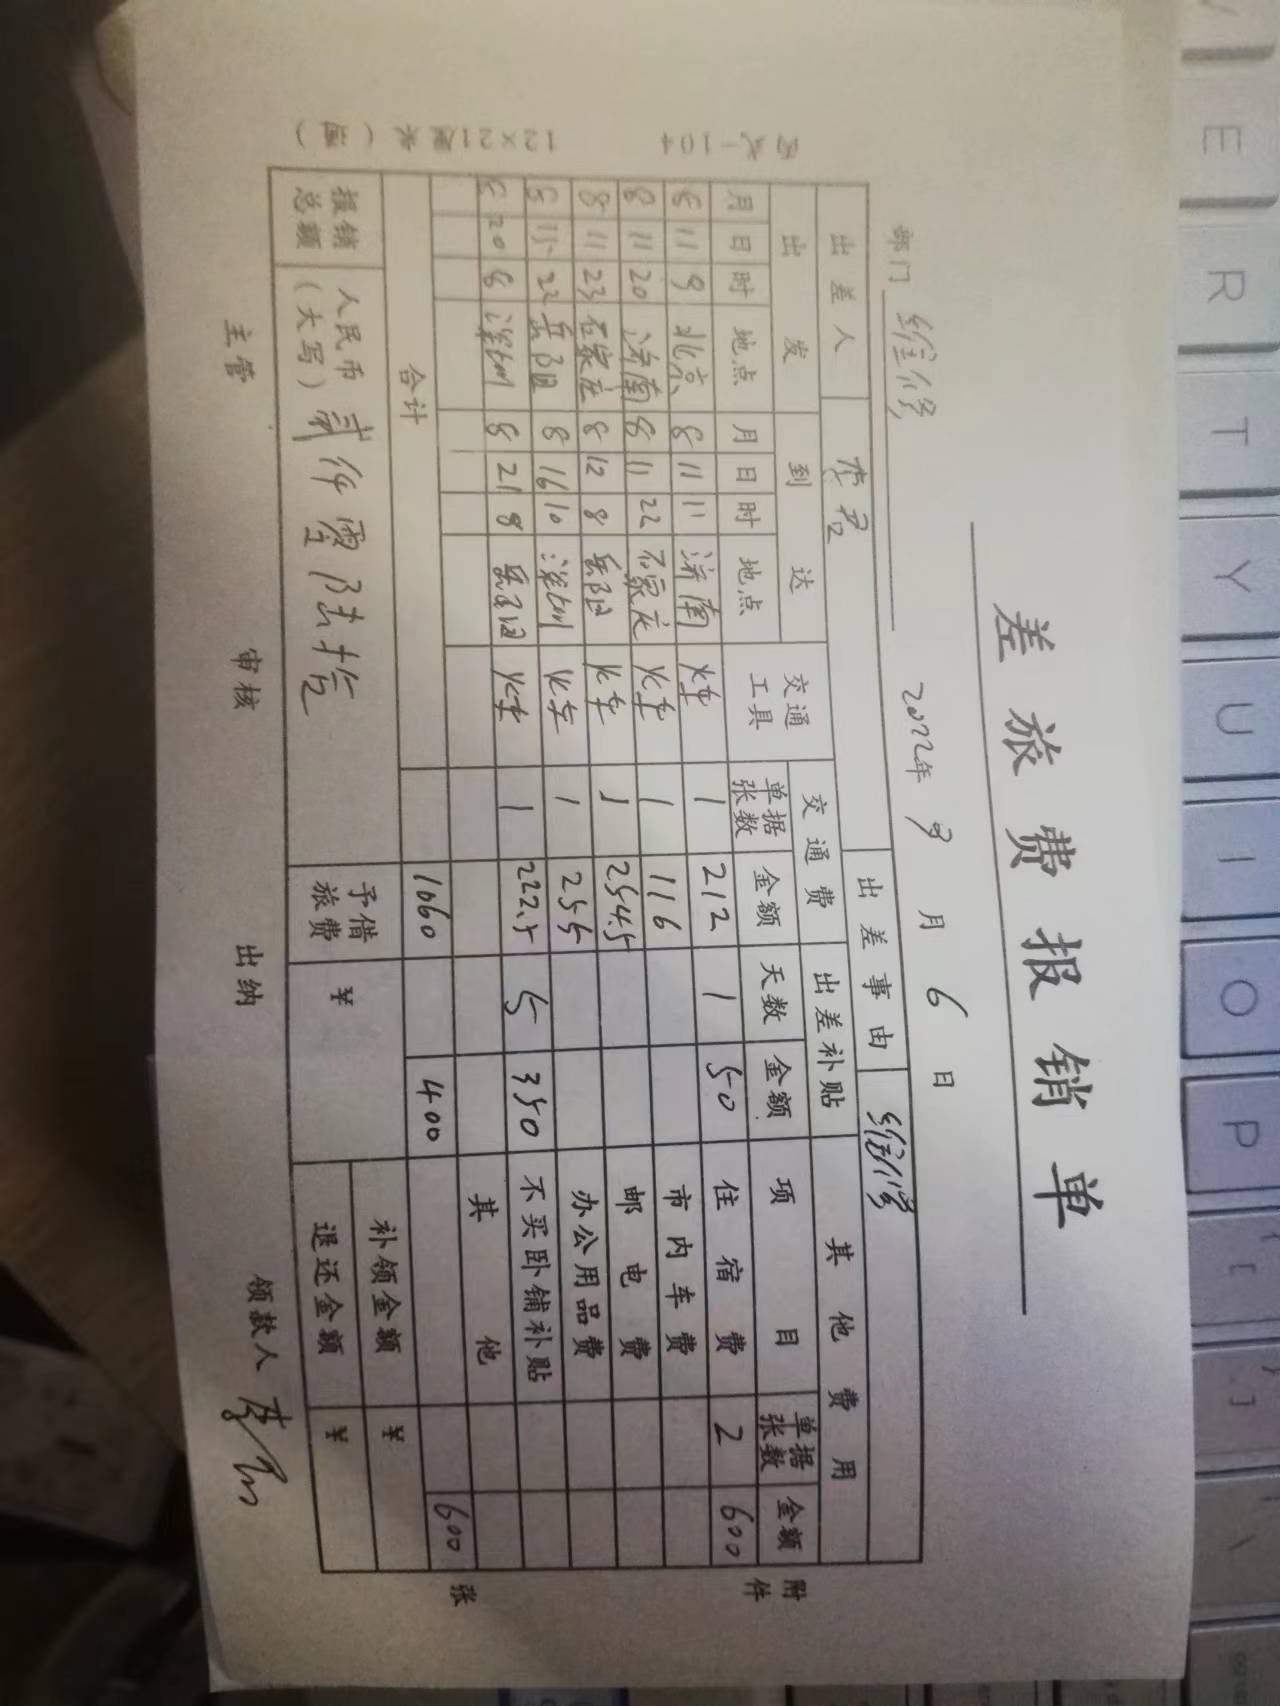 差旅费报销单
部门 维修 2022年 8 月 6 日
出差人 李君 出差事由 维修
出发 到达 交通工具 交通费 出差补贴 其他费用
月 日 时 地点 月 日 时 地点 单据张数 金额 天数 金额 项目 单据张数 金额
8 11 9 北京 8 11 11 济南 火车 1 212 1 50 住宿费 2 600
8 11 20 济南 8 11 22 石家庄 火车 1 116 市内车费
8 11 23 石家庄 8 12 8 岳阳 火车 1 254.5 邮电费
8 15 22 岳阳 8 16 10 深圳 火车 1 255 办公用品费
8 20 8 深圳 8 21 8 岳阳 火车 1 222.5 5 350 不买卧铺补贴
其他
合计 1060 400 600
报销总额 人民币(大写) 贰仟零陆拾 予借旅费 ¥ 补领金额 ¥
退还金额 ¥
主管 审核 出纳 领款人 李君
附件 张
E R T Y U I O P